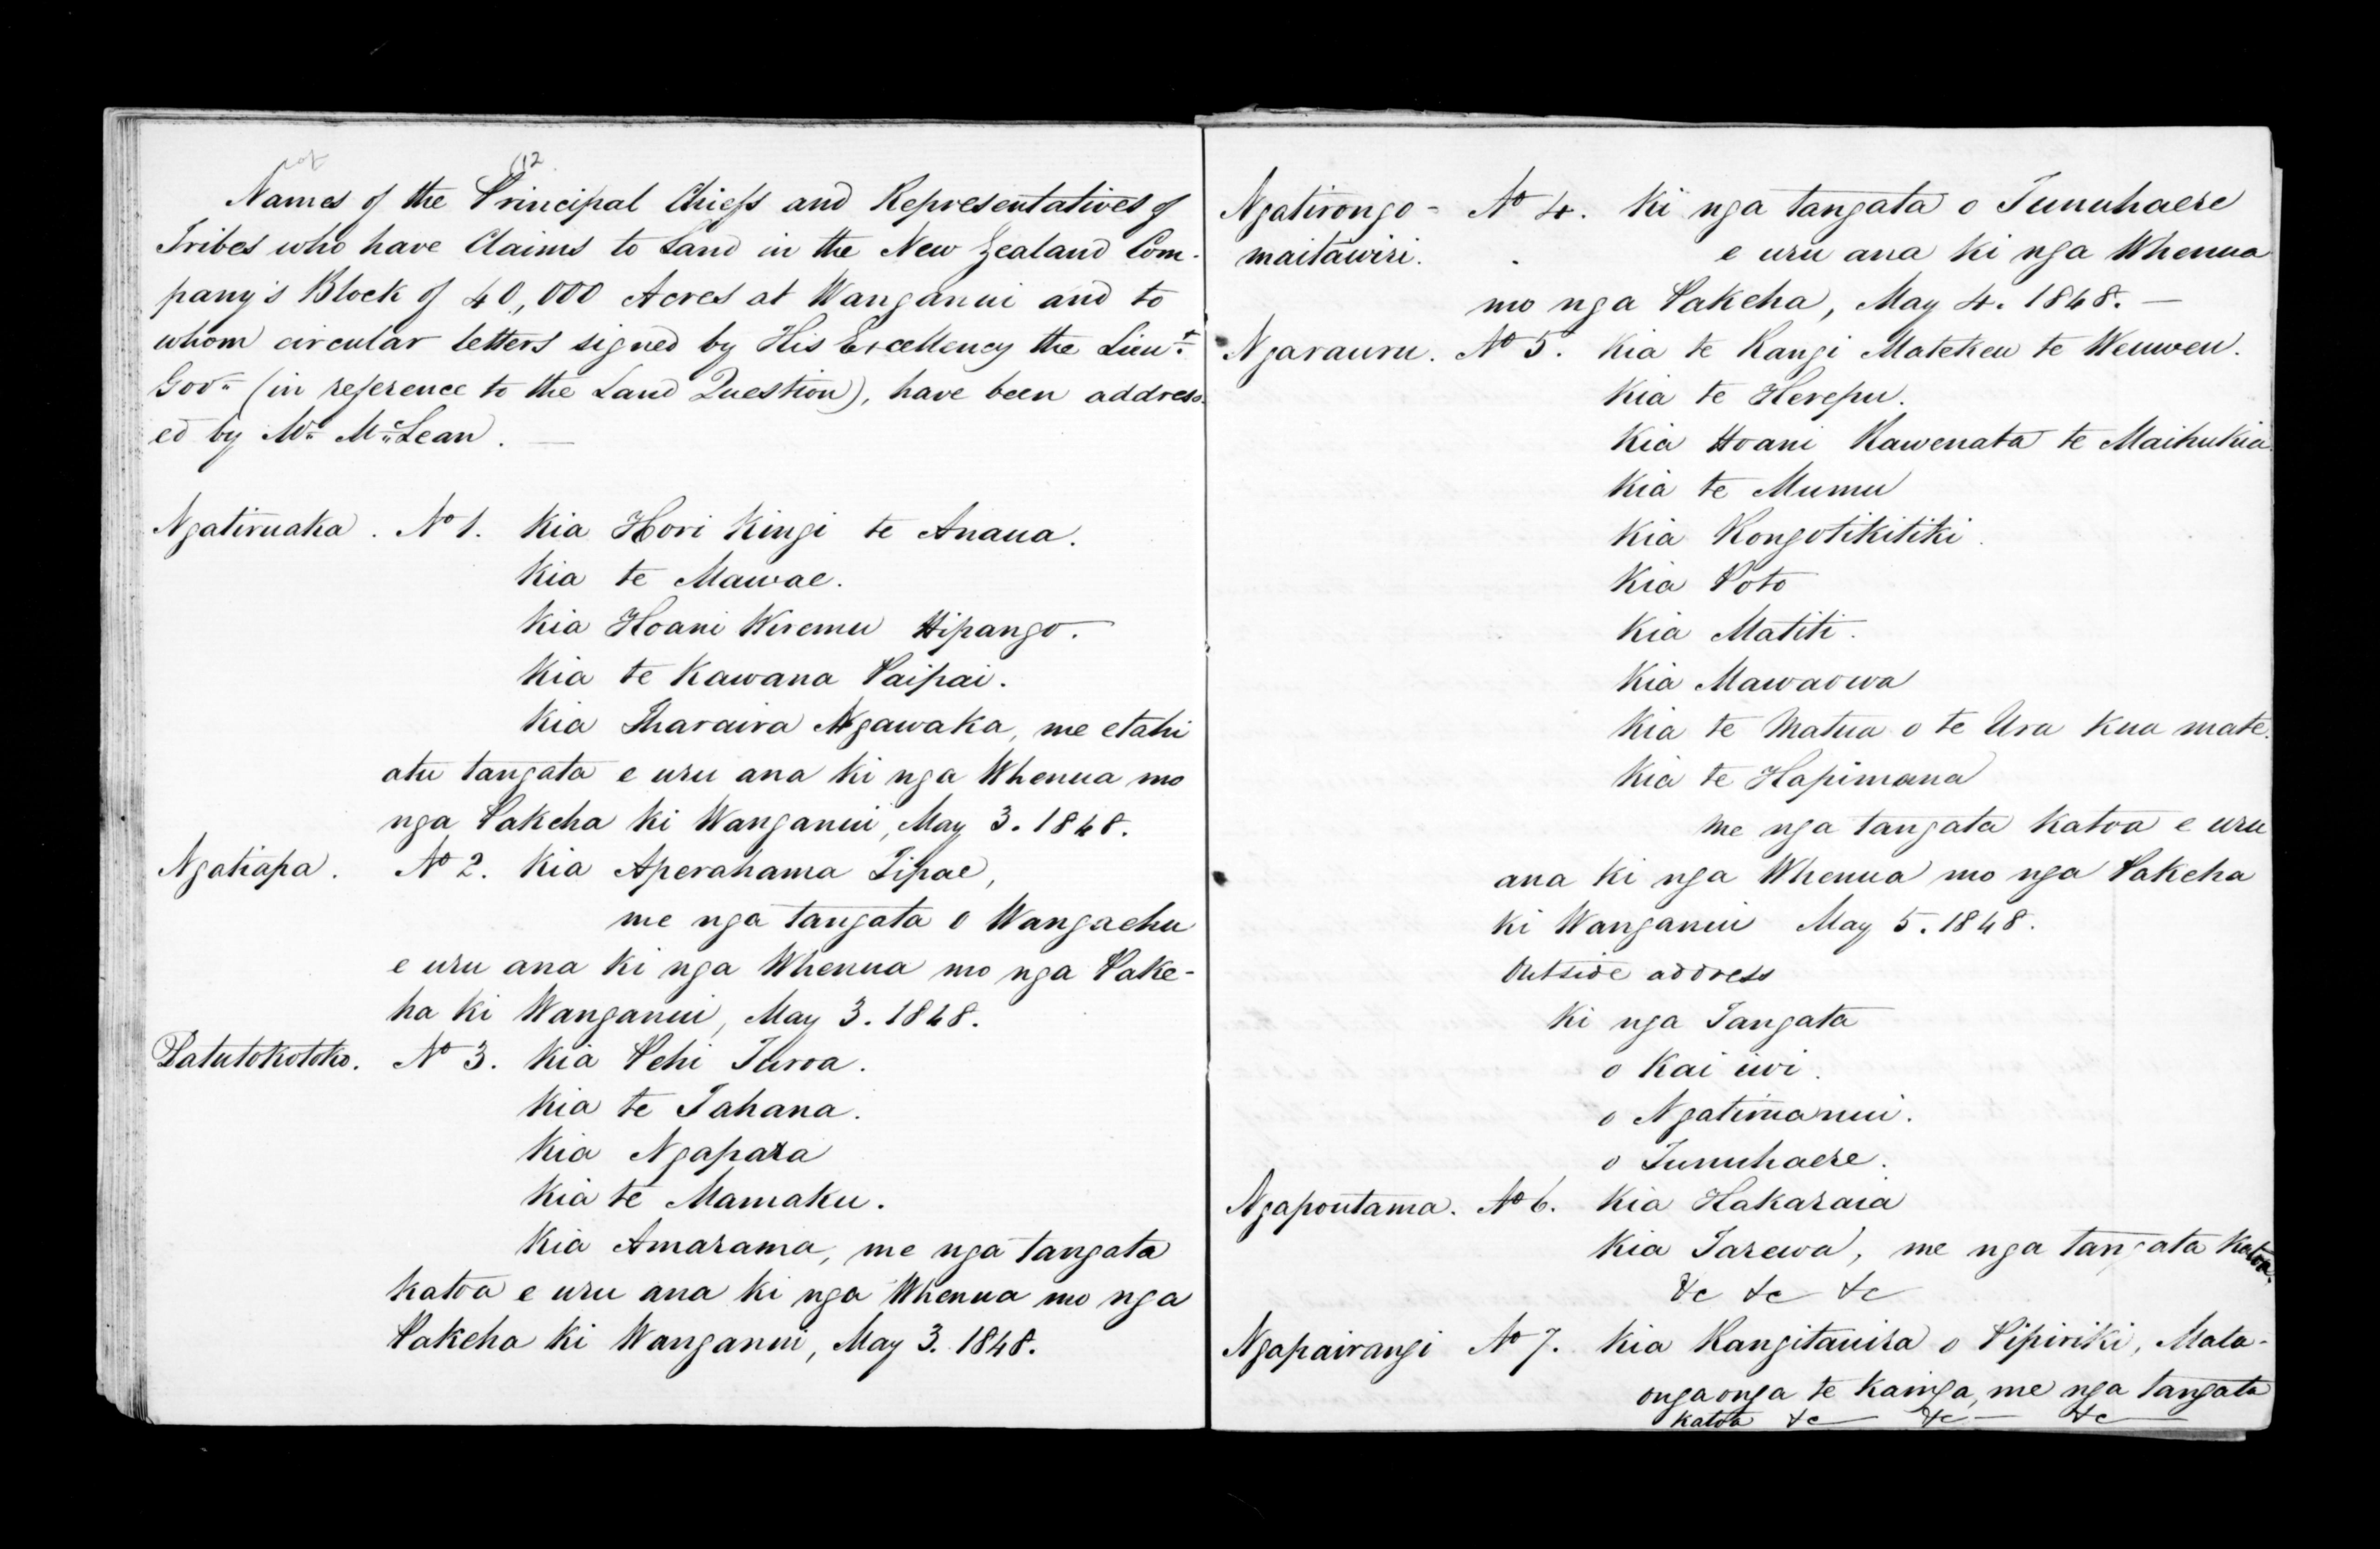 (12
Names of the Principal Chiefs and Representatives of
Tribes who have Claims to Land in the New Zealand Com-
pany's Block of 40,000 Acres at Wanganui and to
whom circular letters signed by His Excellency the Lieut.
Govr. (in reference to the Land Question), have been address-
ed by Mr. McLean. —
Ngatiruaka. No 1. Kia Hori Kingi te Anaua.
Kia te Mawae.
Kia Hoani Wiremu Hipango.
Kia te Kawana Paipai.
Kia Tharaira Ngawaka, me etahi
atu tangata e uru ana ki nga Whenua mo
nga Pakeha ki Wanganui, May 3. 1848.
Ngatiapa. No 2. Kia Aperahama Tipae,
me nga tangata o Wangaehu
e uru ana ki nga Whenua mo nga Pake-
ha ki Wanganui, May 3. 1848.
Patutokotoko. No 3. Kia Pehi Turoa.
Kia te Tahana.
Kia Ngapara
Kia te Mamaku.
Kia Amarama, me nga tangata
katoa e uru ana ki nga Whenua mo nga
Pakeha ki Wanganui, May 3. 1848.
Ngatirongo- No 4. Ki nga tangata o Tunuhaere
maitawiri. e uru ana ki nga Whenua
mo nga Pakeha, May 4. 1848. —
Ngarauru. No 5. Kia te Rangi Matekeu te Weuweu.
Kia te Herepu.
Kia Hoani Kawenata te Maihukia
Kia te Mumu
Kia Rongotikitiki.
Kia Poto
Kia Matiti.
Kia Mawaowa
Kia te Matua o te Ura kua mate.
Kia te Hapimana
me nga tangata katoa e uru
ana ki nga Whenua mo nga Pakeha
ki Wanganui May 5. 1848.
Outside address
Ki nga Tangata
o Kai iwi.
o Ngatimanui.
o Tunuhaere.
Ngapoutama. No 6. Kia Hakaraia
Kia Tarewa, me nga tangata katoa.
&c &c &c
Ngapairangi No 7. Kia Rangitauira o Pipiriki, Mata-
ongaonga te kainga, me nga tangata
katoa &c — &c — &c —